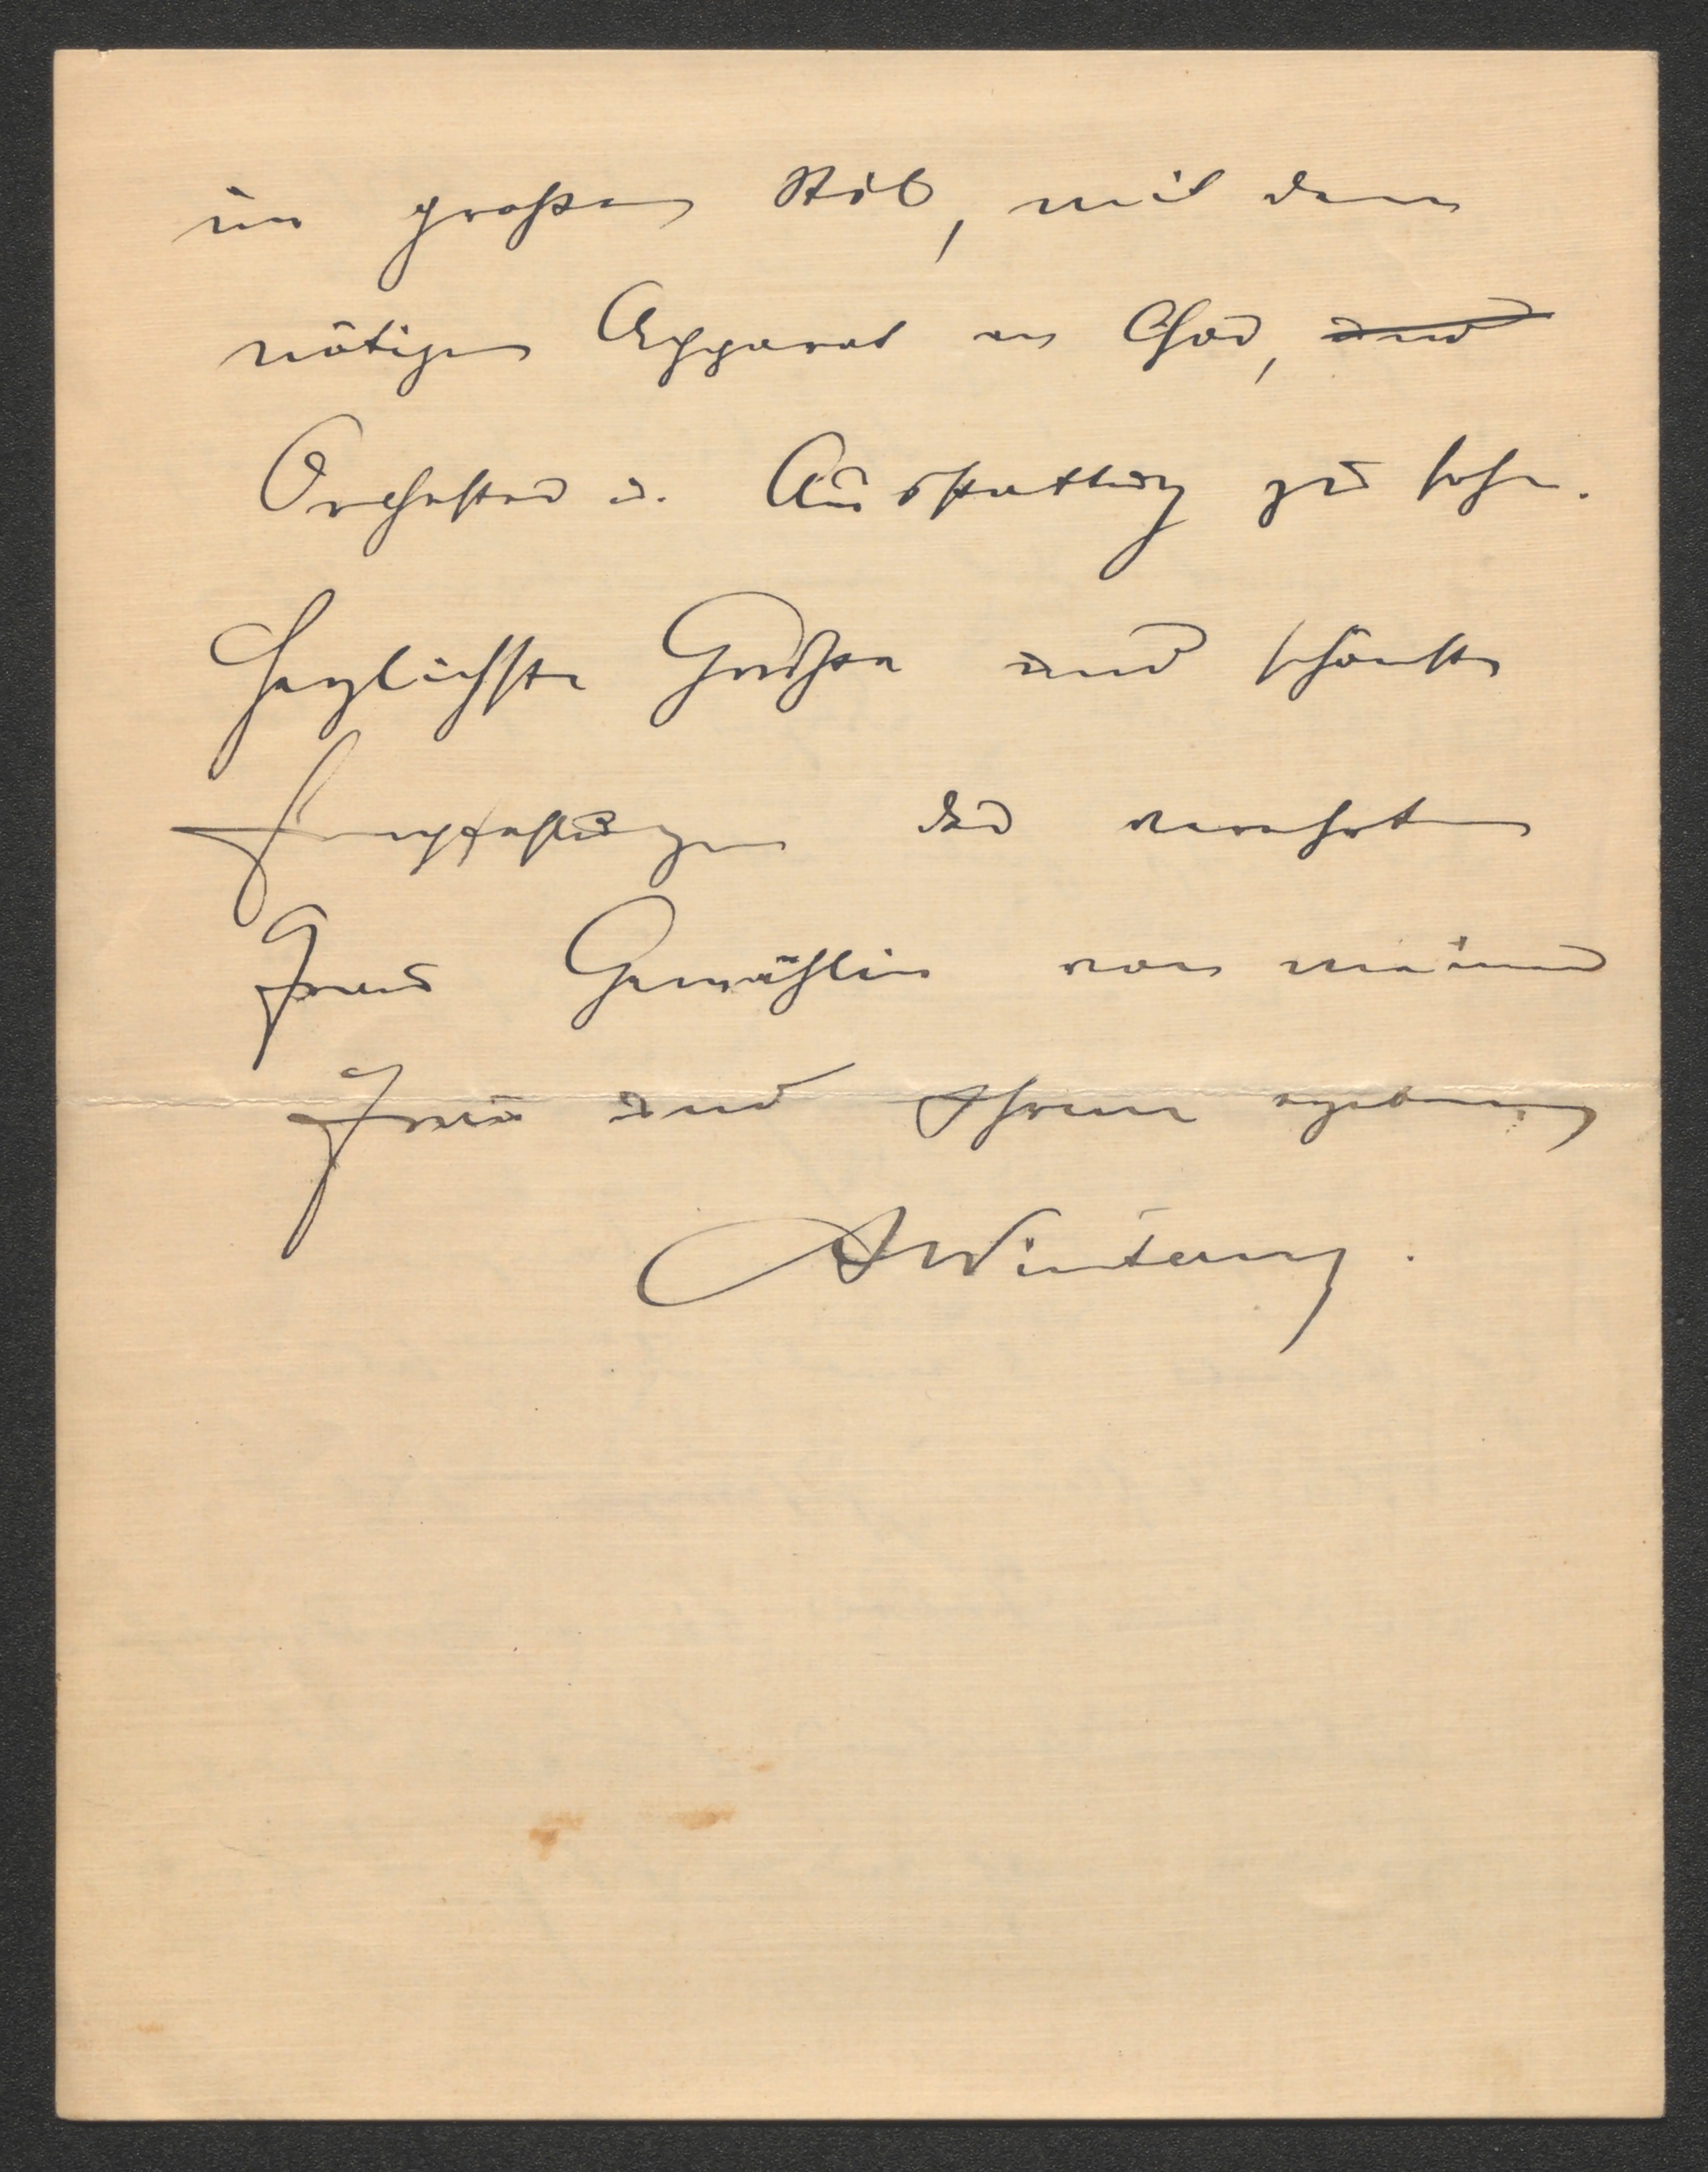 im großen Stil, mit dem
nötigen Apparat an Chor, und
Orchester u. Ausstattung zu sehen.
Herzlichste Grüße und schönste
Empfehlungen der verehrten
Frau Gemahlin von meiner
Frau und Ihrem ergebenen
AWinternitz.